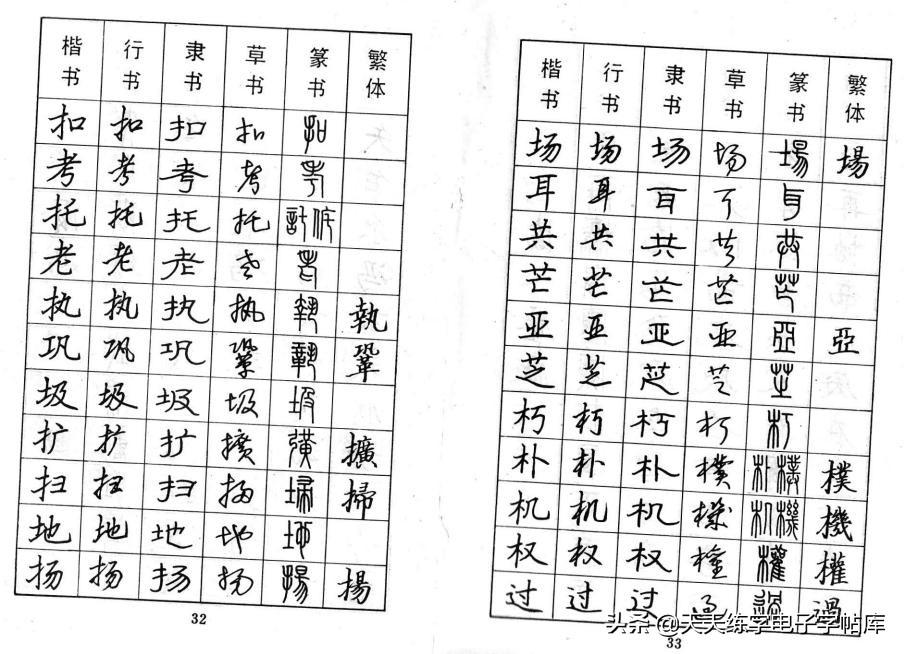 楷书 行书 隶书 草书 篆书 繁体
扣 扣 扣 扣 扣
考 考 考 考 考
托 托 托 托 託侂
老 老 老 老 老
执 执 执 执 執 執
巩 巩 巩 鞏 鞏 鞏
圾 圾 圾 圾 圾
扩 扩 扩 擴 彉 擴
扫 扫 扫 掃 埽 掃
地 地 地 地 地
扬 扬 扬 扬 揚 揚
32
楷书 行书 隶书 草书 篆书 繁体
场 场 场 场 場 場
耳 耳 耳 耳 耳
共 共 共 共 共
芒 芒 芒 芒 芒
亚 亚 亚 亚 亞 亞
芝 芝 芝 芝 芝
朽 朽 朽 朽 朽
朴 朴 朴 樸 朴樸 樸
机 机 机 機 机機 機
权 权 权 權 權 權
过 过 过 过 過 過
33
头条 @天天练字电子字帖库